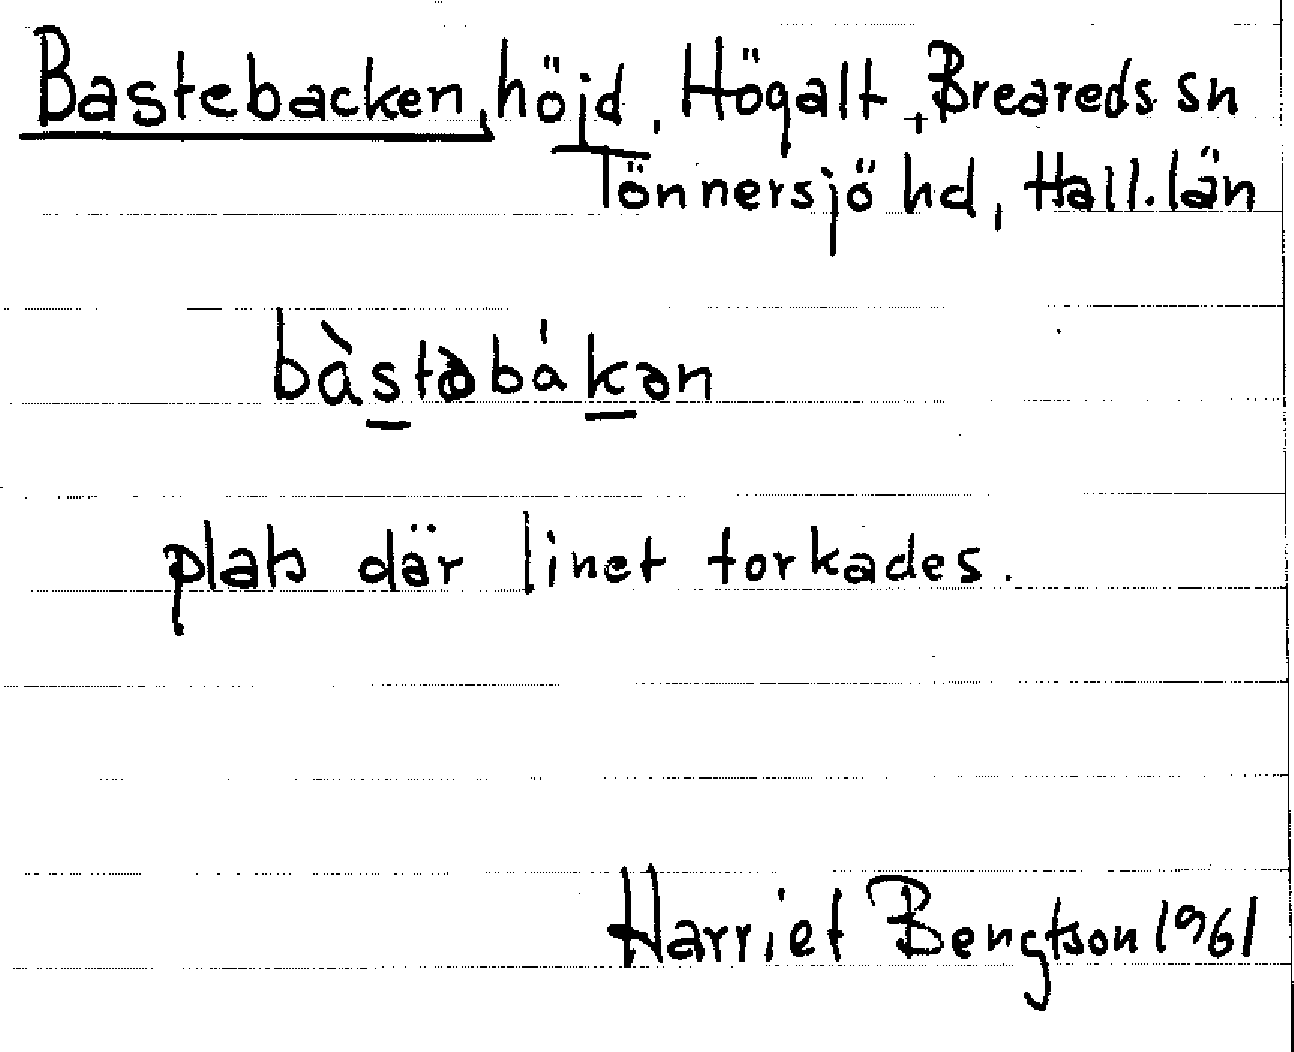 Bastebacken, höjd, Högalt, Breareds sn
Tönnersjö hd, Hall. län
bàstəbákən
plats där linet torkades.
Harriet Bengtson 1961